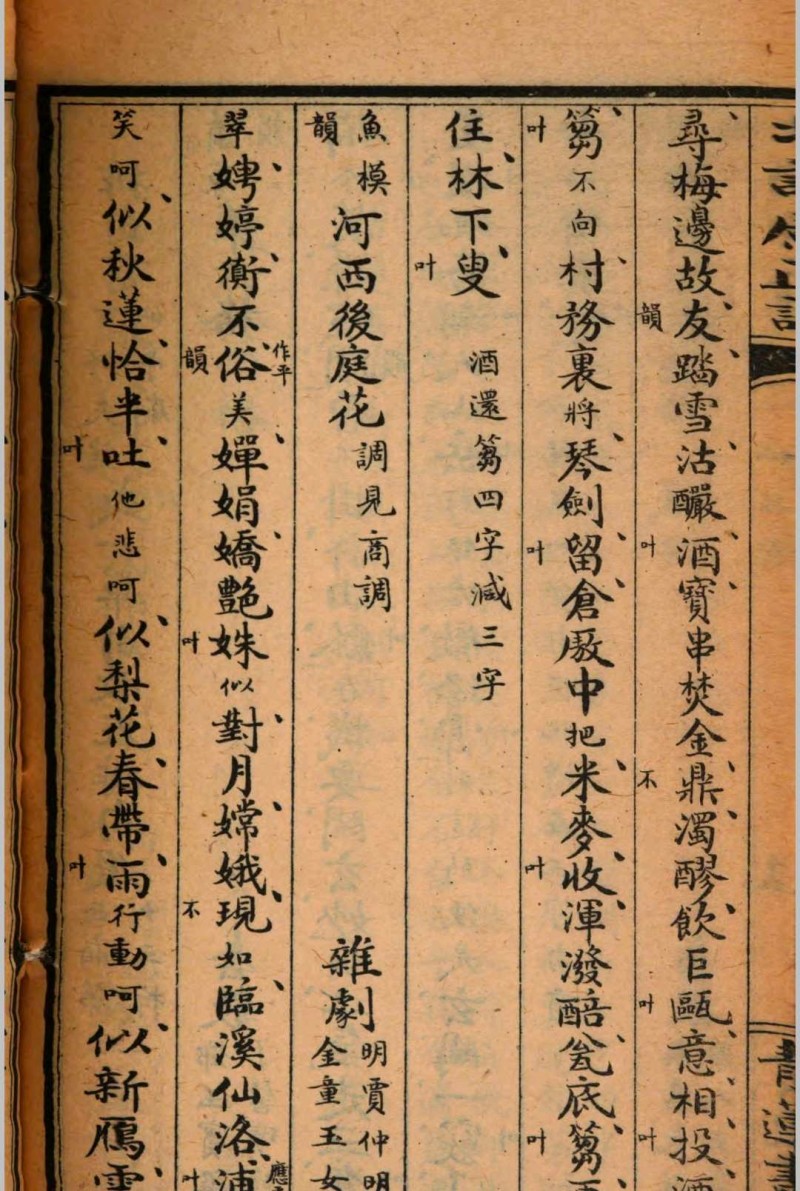 尋梅邊故友韻踏雪沽釅酒叶寶串焚金鼎不濁醪飲巨甌叶意相投叶酒
篘叶不向村務裏將琴劍留叶倉厫中把米麥收叶渾潑醅瓮底篘叶
住林下叟叶 酒還篘四字減三字
魚模韻 河西後庭花 調見商調 雜劇 明賈仲明金童玉女
翠娉婷衠不俗作平韻美嬋娟嬌艷姝叶似對月嫦娥現不如臨溪仙洛浦叶
笑呵似秋蓮恰半吐叶他悲呵似梨花春帶雨叶行動呵似新鴈雲